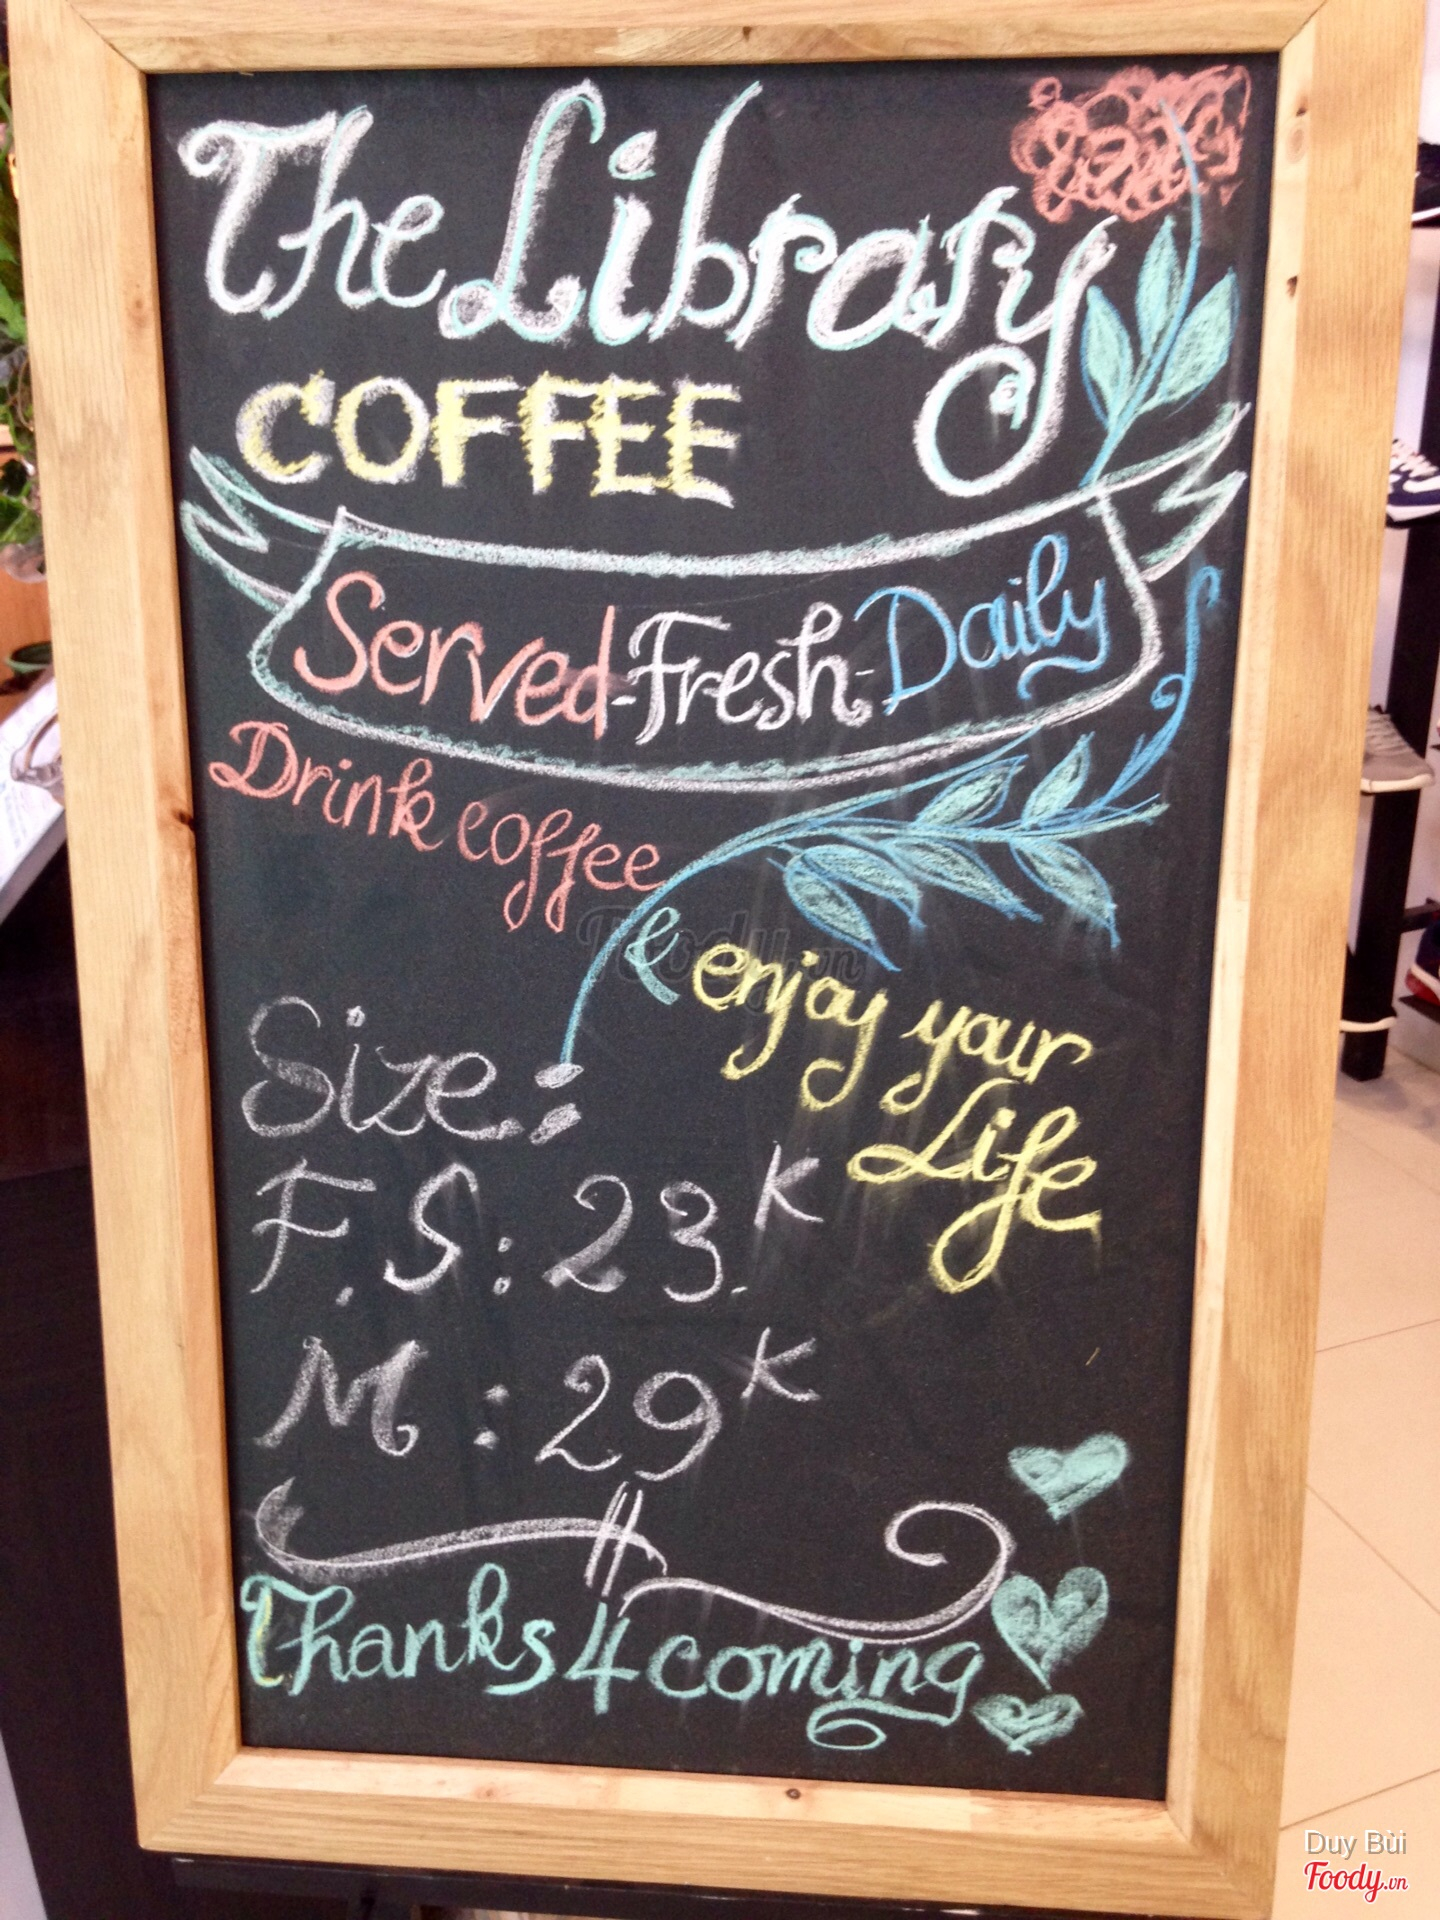 The Library
COFFEE
Served-Fresh-Daily
Drink coffee
& enjoy your
Life
Size:
F.S: 23.K
M: 29K
Thanks 4 coming
Foody.vn
Duy Bùi
Foody.vn